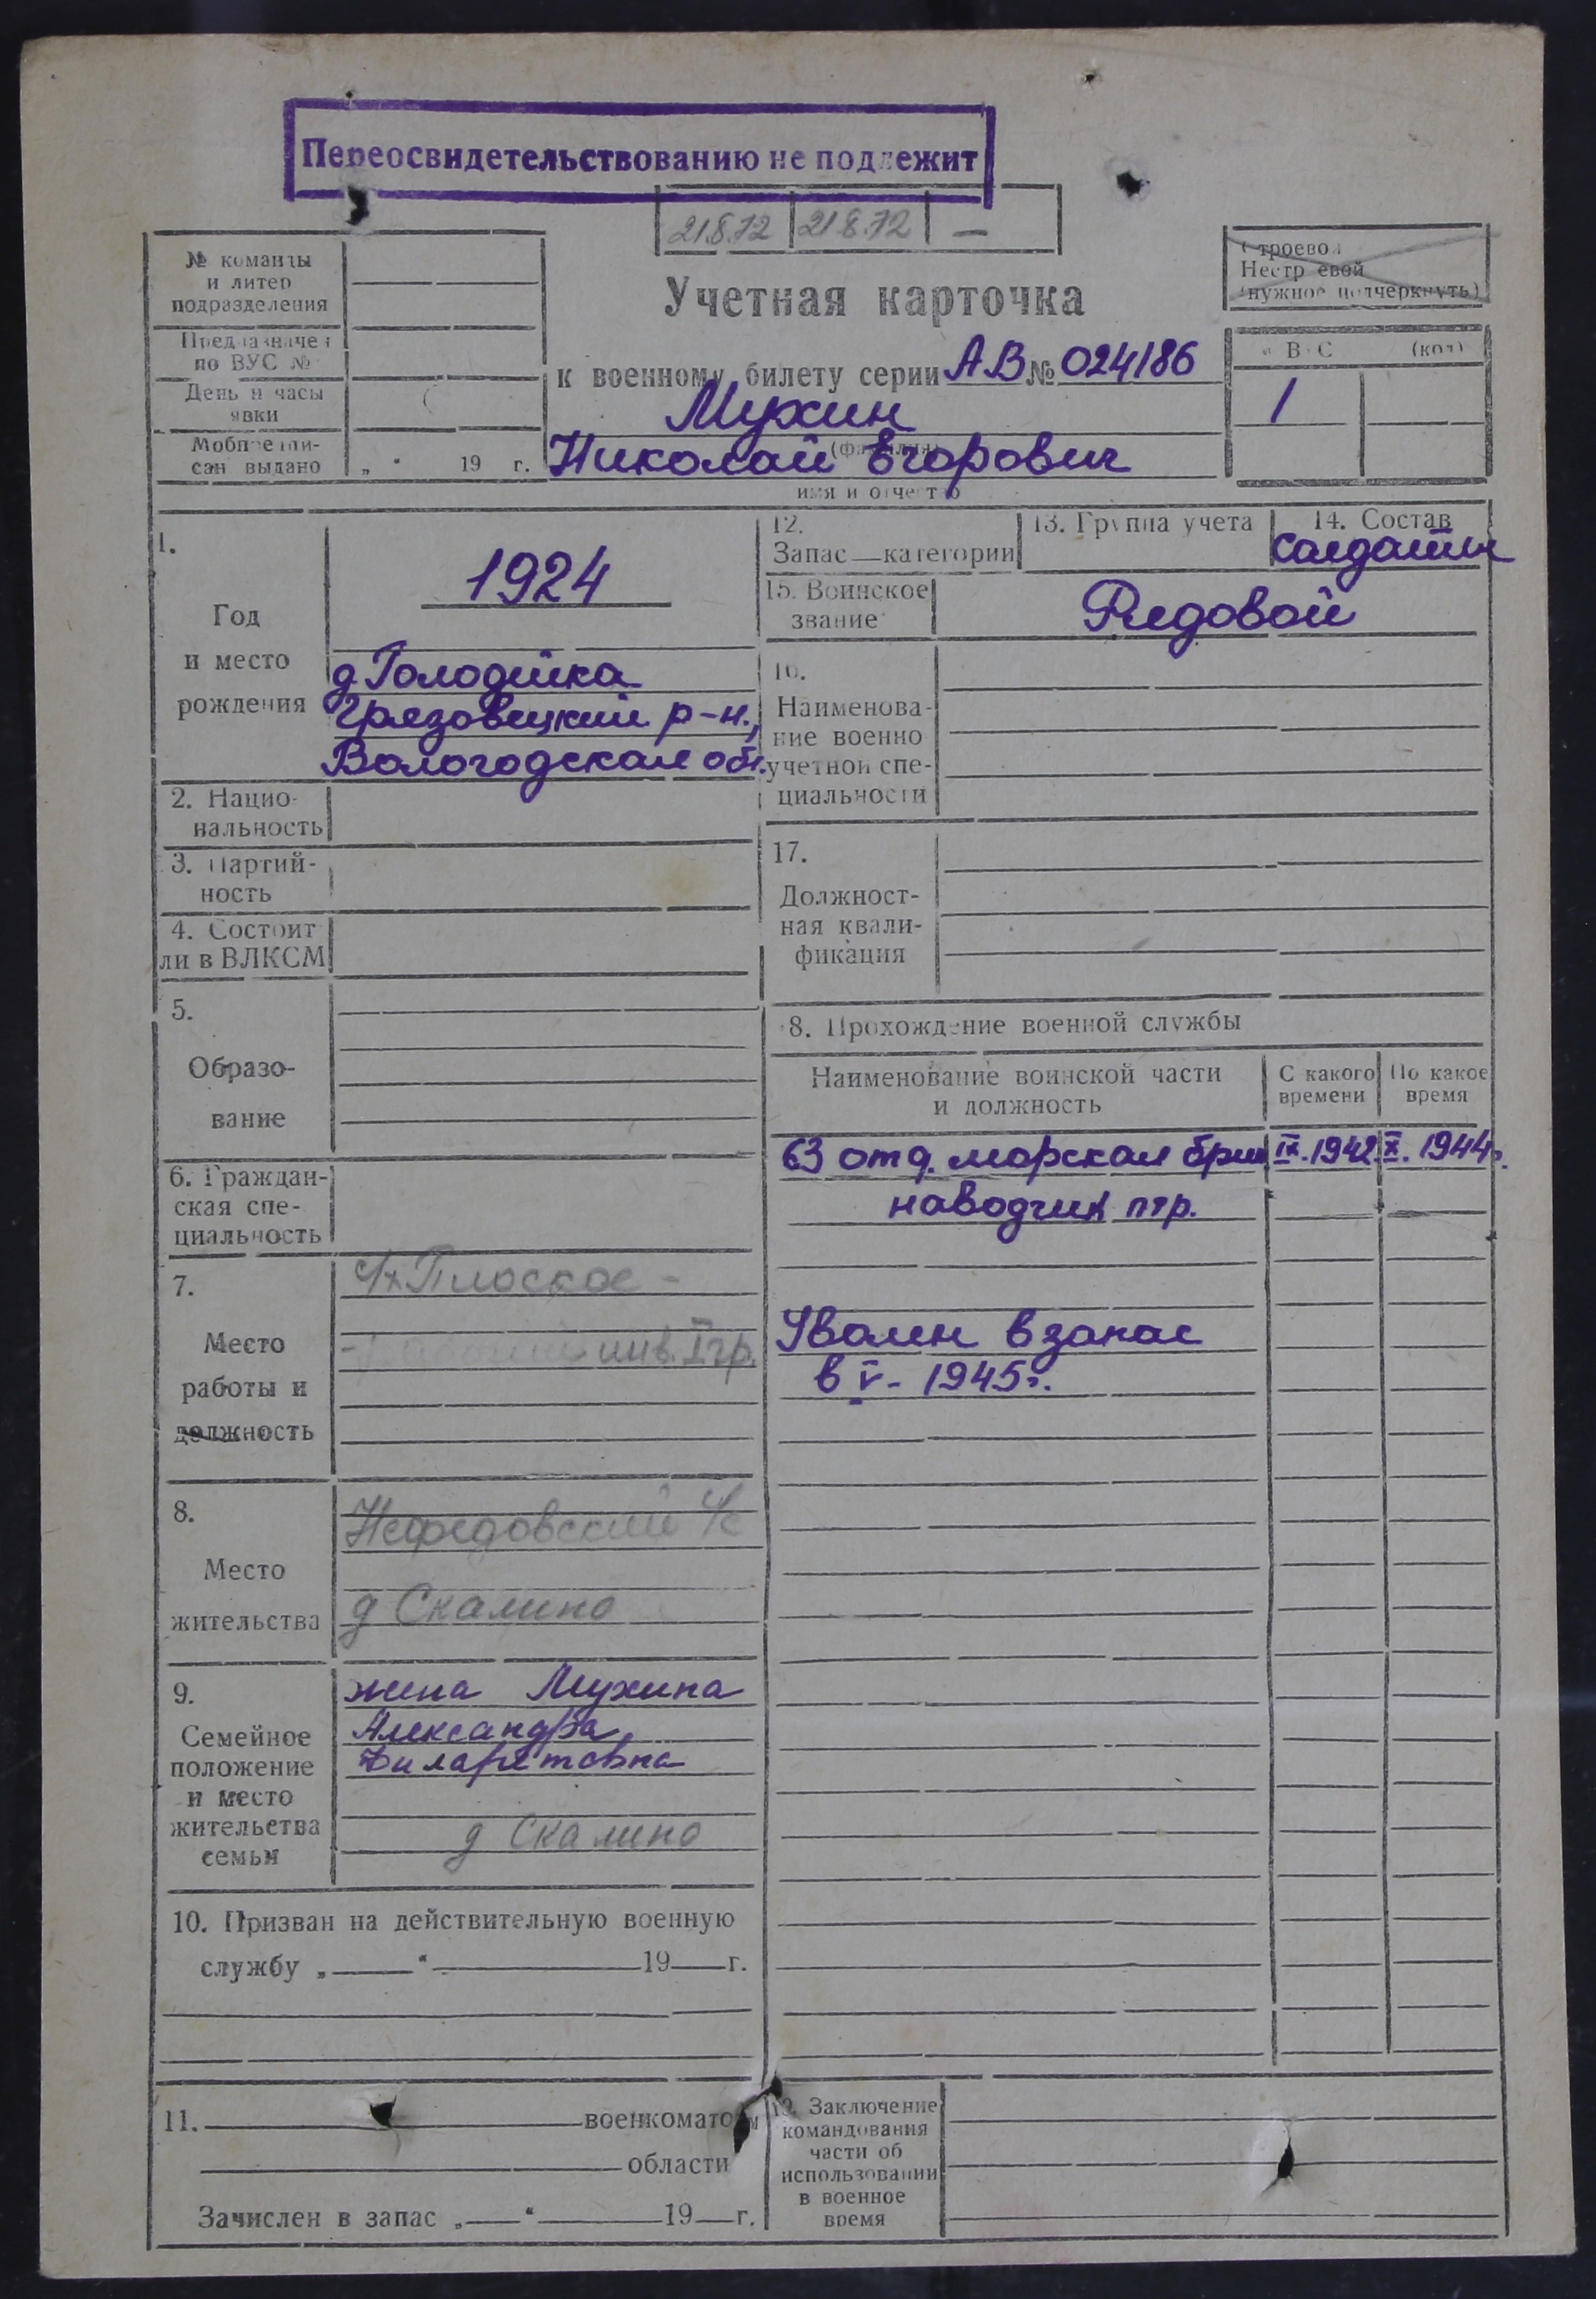 Переосвидетельствованию не подлежит
21.8.72 21.8.72 —
Строевой
Нестроевой
(нужное подчеркнуть)
№ команды
и литер
подразделения
Учетная карточка
Предназначен
по ВУС №
к военному билету серии АВ № 024186
(код)
1
День и часы
явки
Мухин
(фамилия)
Мобпредпи-
сан выдано „ “ 19 г.
Николай Егорович
имя и отчество
1.
Год
и место
рождения
1924
д Голодейка
Грязовецкий р-н.,
Вологодская обл.
2. Нацио-
нальность
3. Партий-
ность
4. Состоит
ли в ВЛКСМ
5.
Образо-
вание
6. Граждан-
ская спе-
циальность
7.
Место
работы и
должность
к/х Плоское -
инв. I гр.
8.
Место
жительства
Нефедовский с/с
д Скалино
9.
Семейное
положение
и место
жительства
семьи
жена Мухина
Александра
Филаретовна
д Скалино
10. Призван на действительную военную
службу „ “ 19 г.
11. военкоматом
области
Зачислен в запас „ “ 19 г.
12.
Запас — категории
13. Группа учета
14. Состав
солдаты
15. Воинское
звание
Рядовой
16.
Наименова-
ние военно
учетной спе-
циальности
17.
Должност-
ная квали-
фикация
18. Прохождение военной службы
Наименование воинской части
и должность
С какого
времени
По какое
время
63 отд. морская бриг IX.1942 X. 1944г.
наводчик птр.
Уволен в запас
в V - 1945г.
19. Заключение
командования
части об
использовании
в военное
время